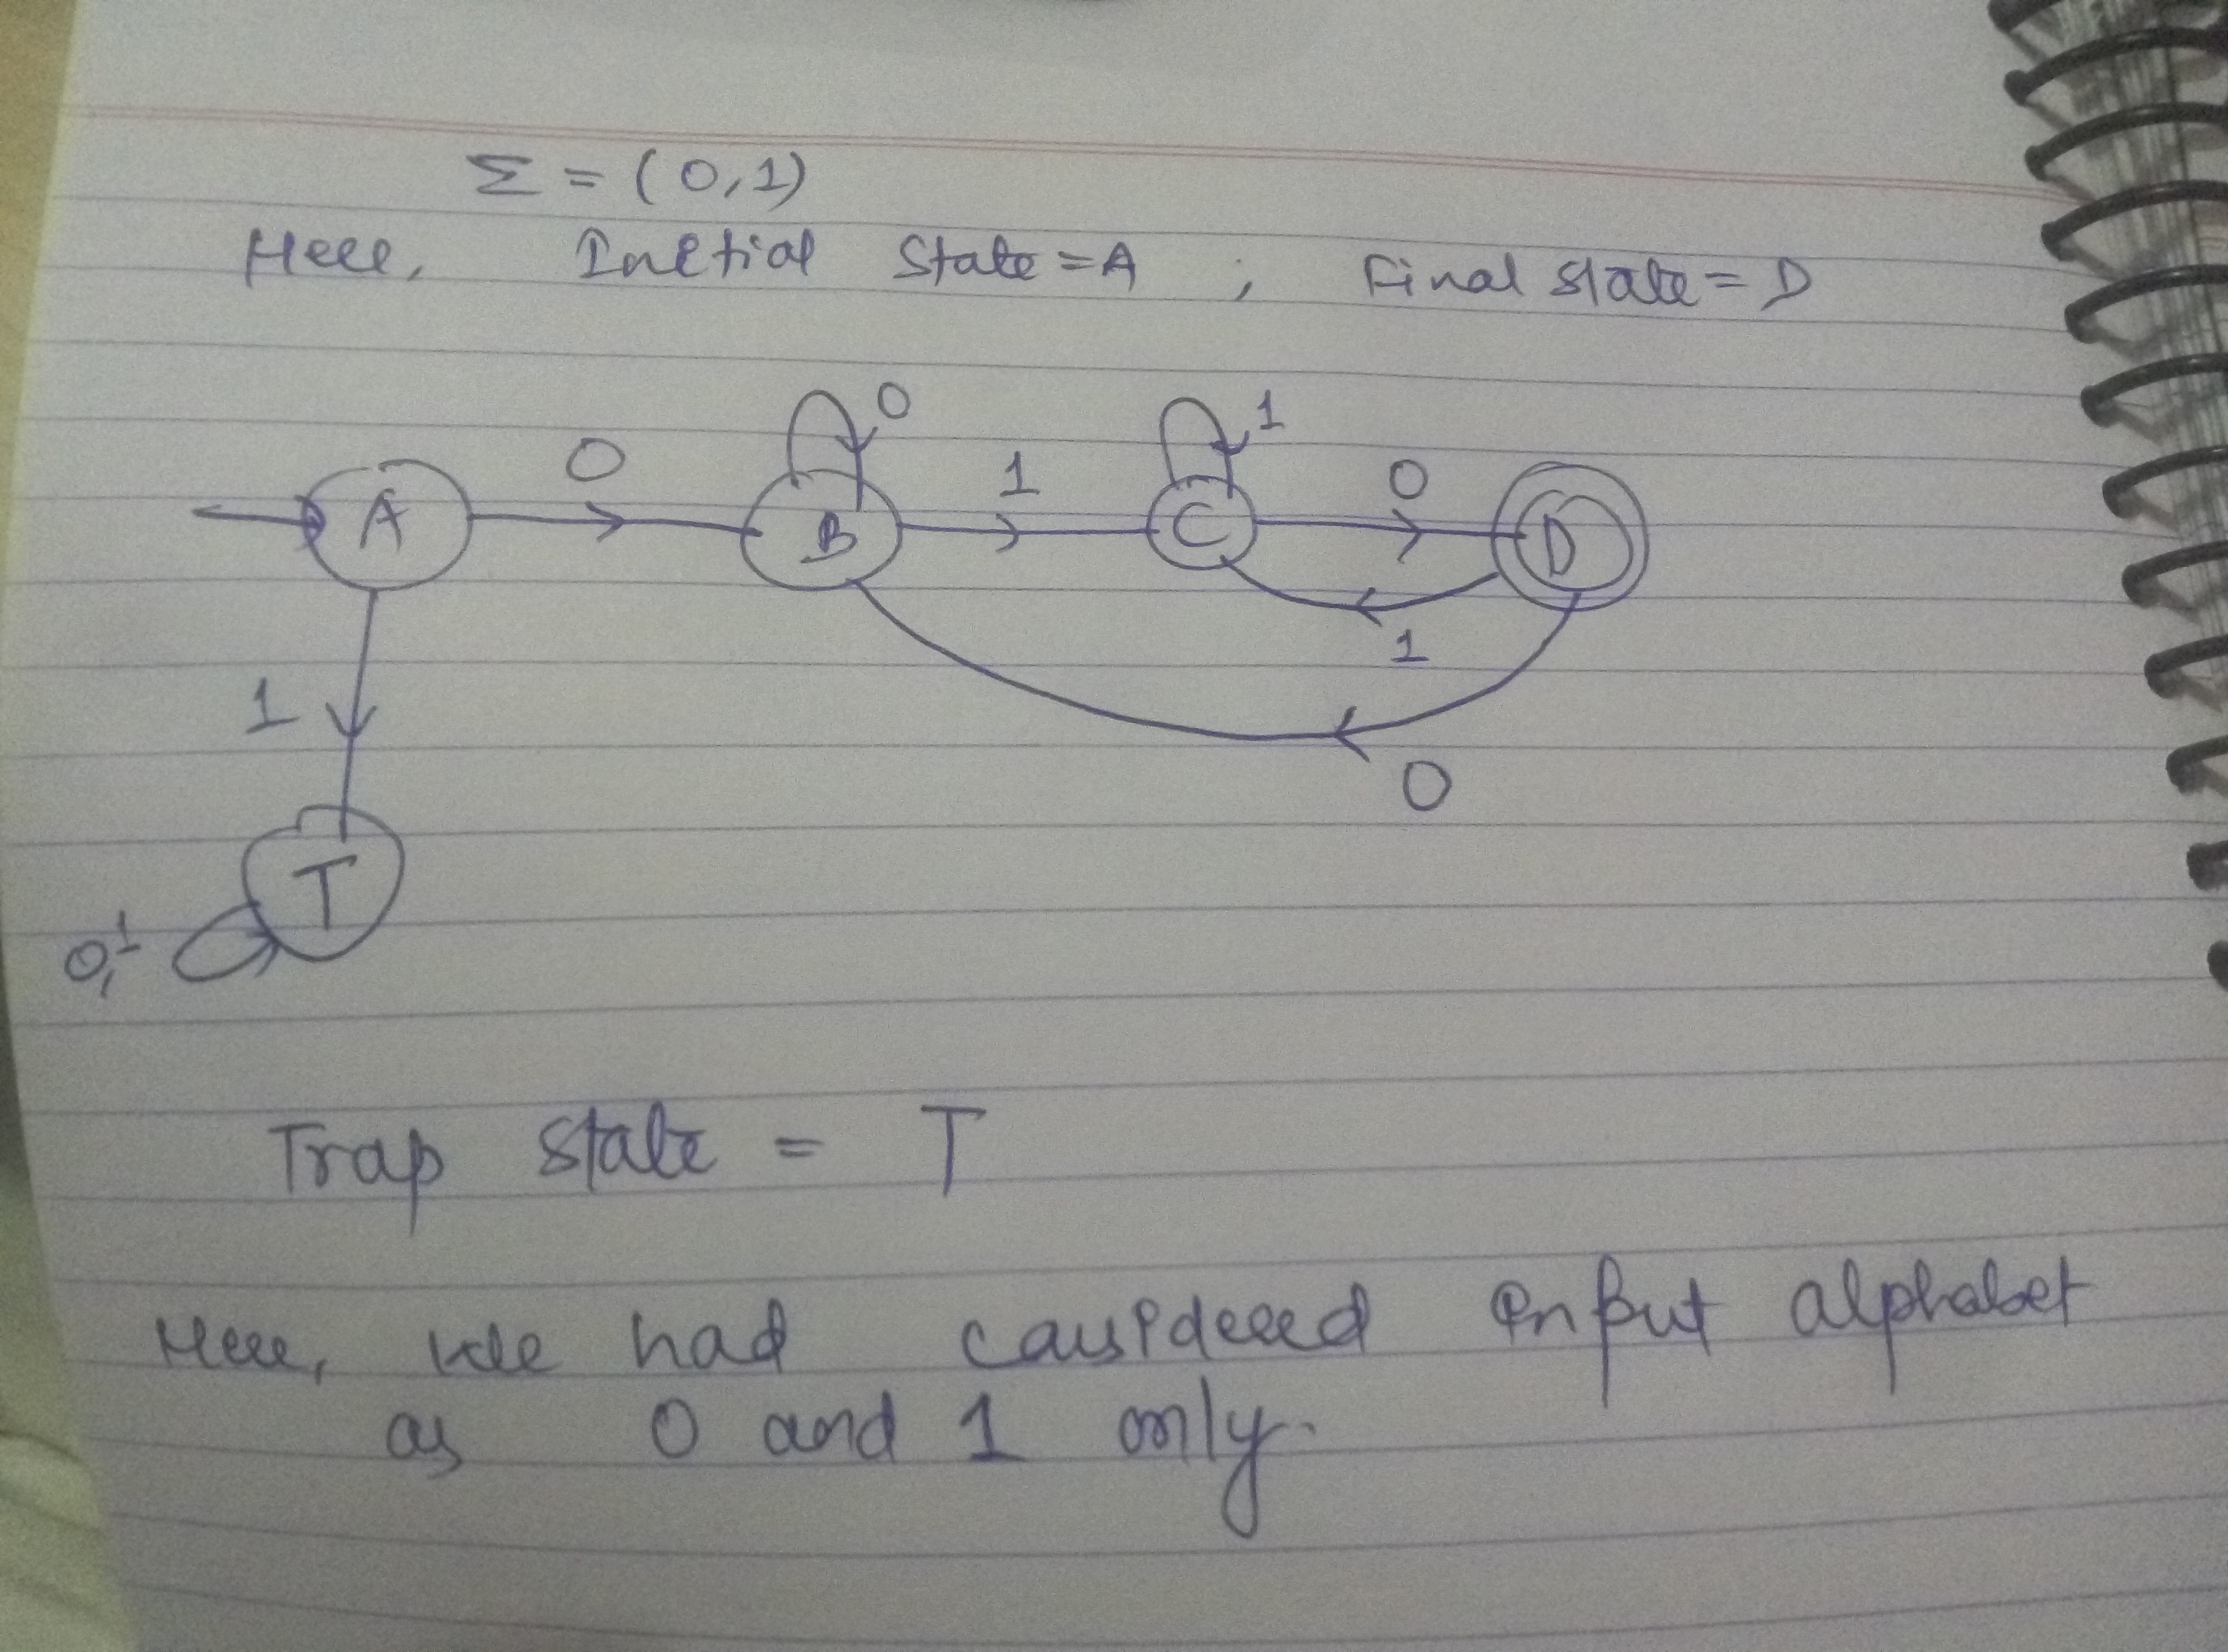 Σ = (0,1)
Here, Initial State = A ; Final State = D
0 1
0 1 0
A B C D
1
1
0
T
0,1
Trap state = T
Here, we had considered input alphabet
as 0 and 1 only.